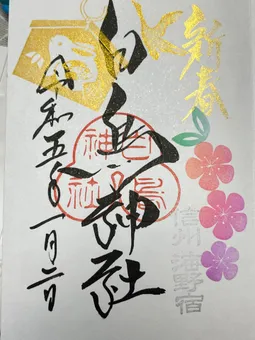 新春
白鳥神社
白鳥
神社
信州 海野宿
令和五年一月二日